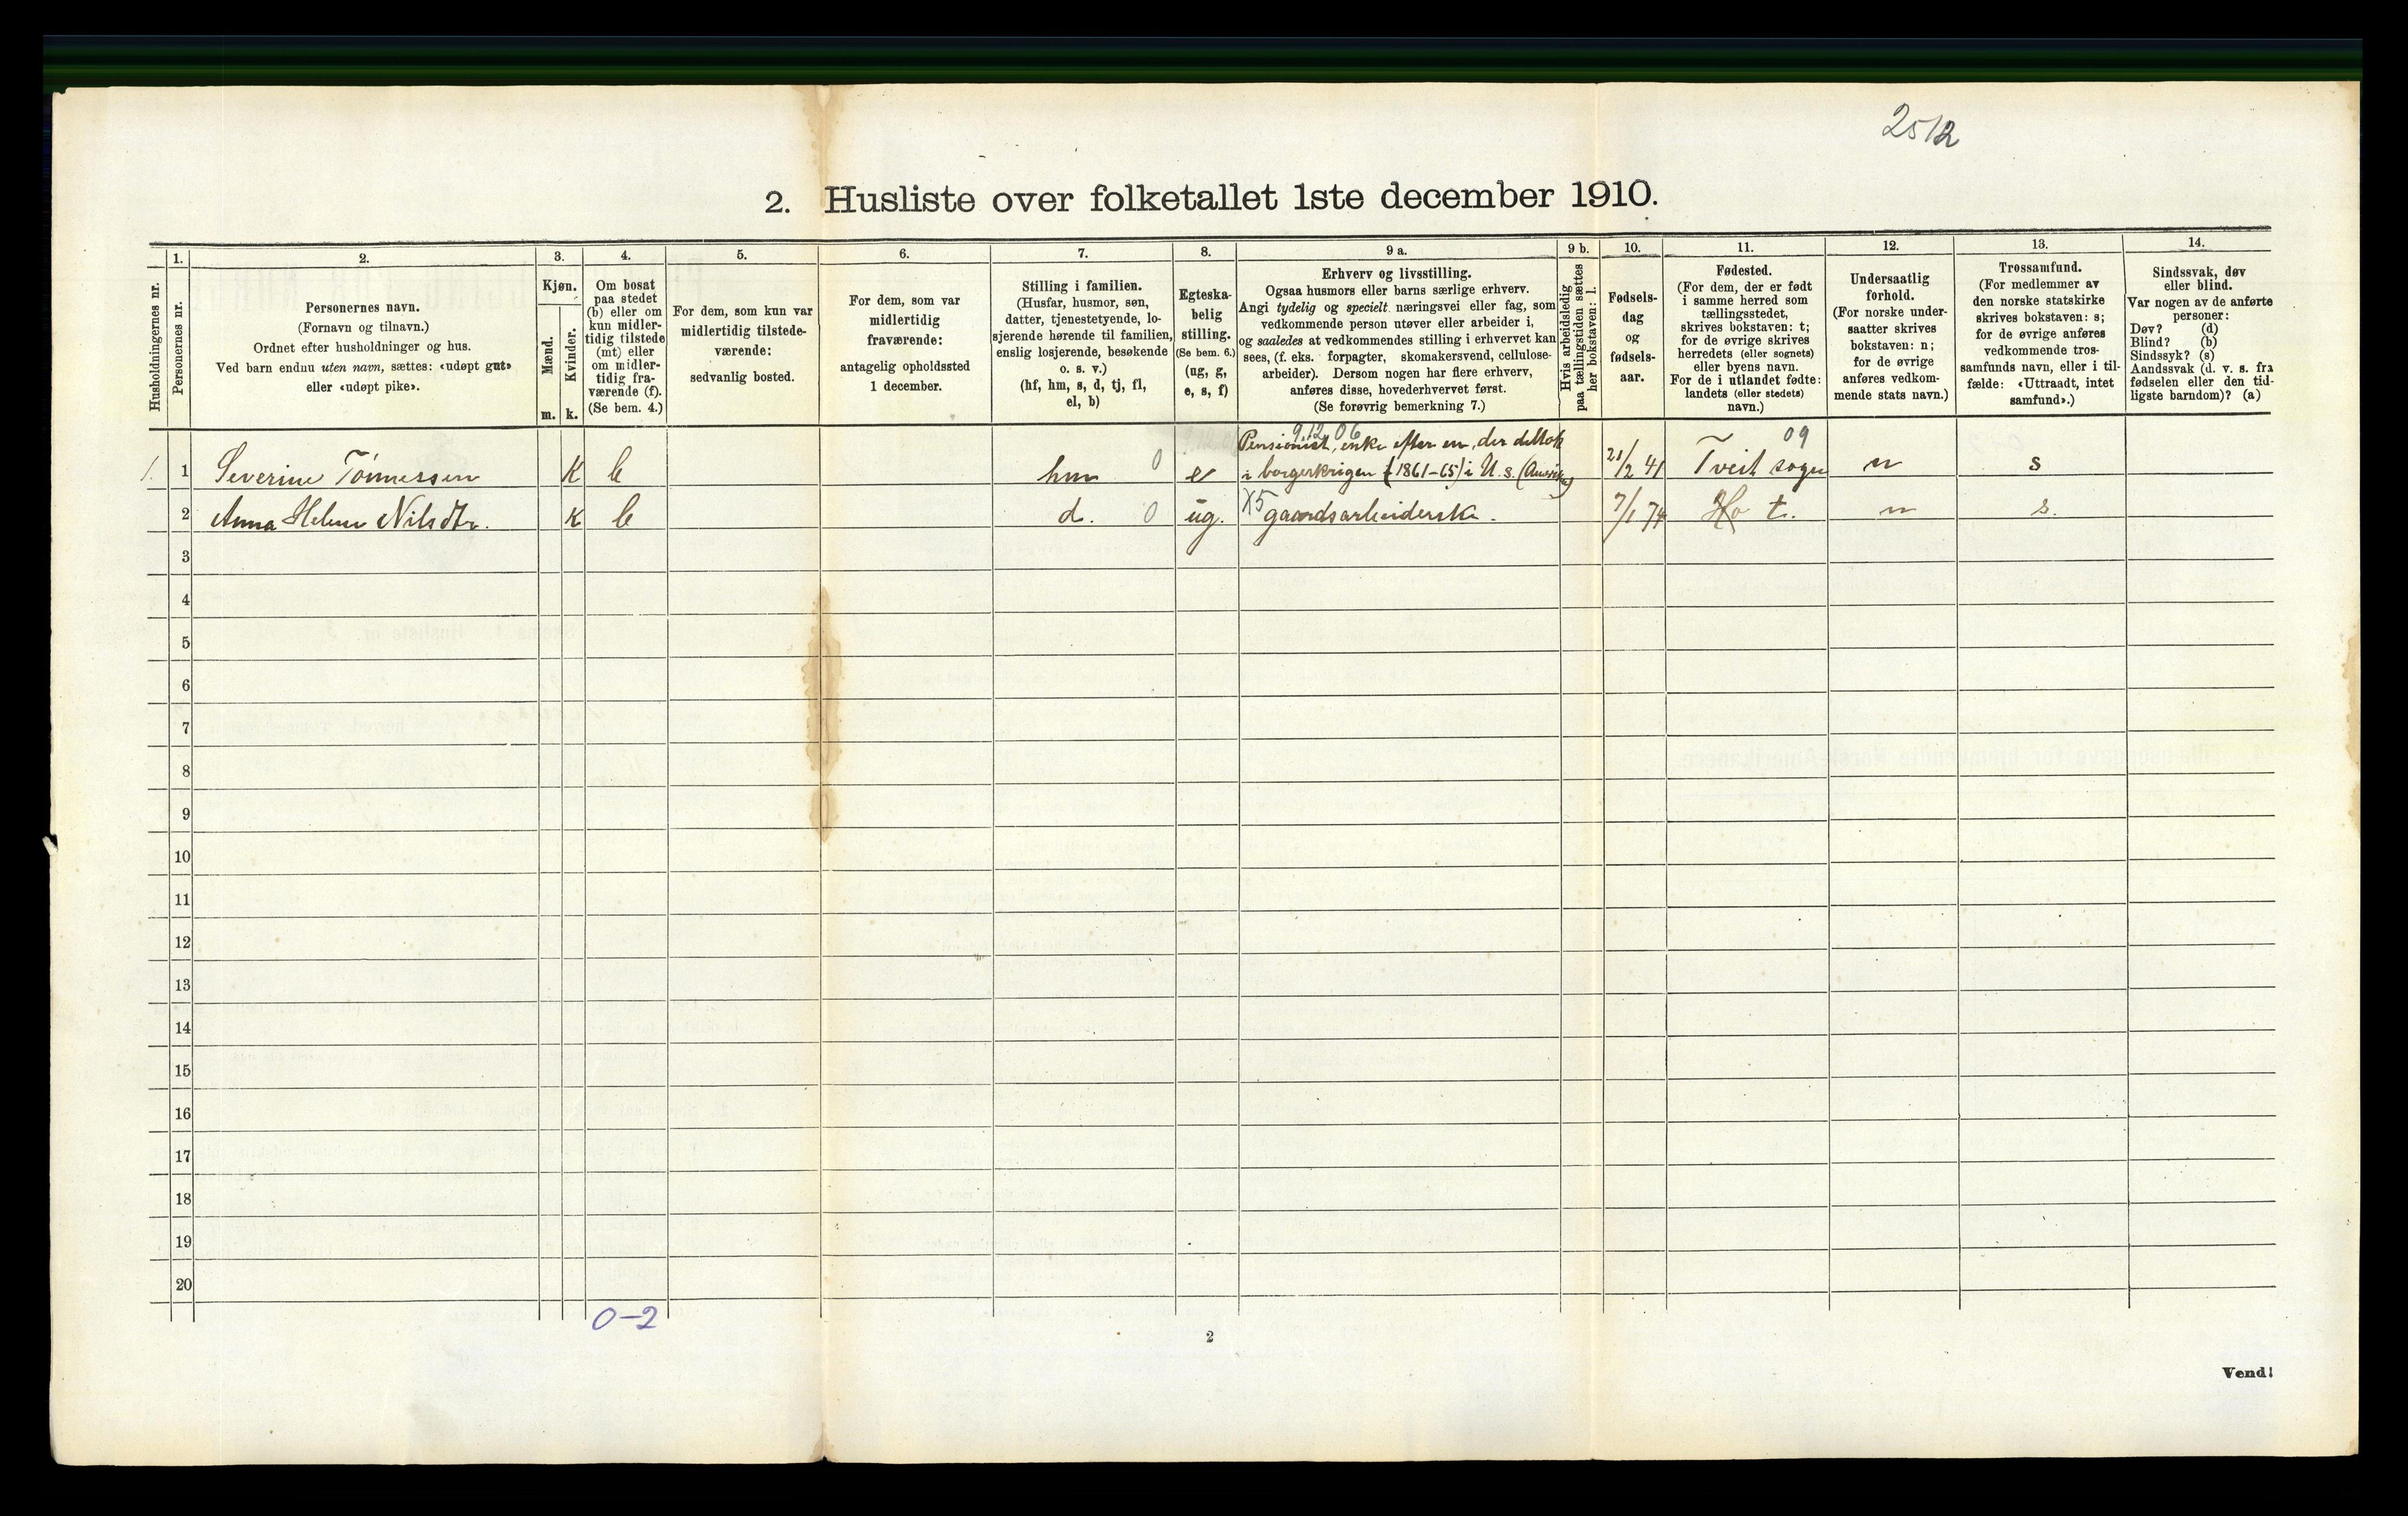 2512
2. Husliste over folketallet 1ste december 1910.
Husholdningernes nr.
1.
Personernes nr.
2.
Personernes navn.
(Fornavn og tilnavn.)
Ordnet efter husholdninger og hus.
Ved barn endnu uten navn, sættes: «udøpt gut»
eller «udøpt pike».
3.
Kjøn.
Mænd.
Kvinder.
m. k.
4.
Om bosat
paa stedet
(b) eller om
kun midler-
tidig tilstede
(mt) eller
om midler-
tidig fra-
værende (f).
(Se bem. 4.)
5.
For dem, som kun var
midlertidig tilstede-
værende:
sedvanlig bosted.
6.
For dem, som var
midlertidig
fraværende:
antagelig opholdssted
1 december.
7.
Stilling i familien.
(Husfar, husmor, søn,
datter, tjenestetyende, lo-
sjerende hørende til familien,
enslig losjerende, besøkende
o. s. v.)
(hf, hm, s, d, tj, fl,
el, b)
8.
Egteska-
belig
stilling.
(Se bem. 6.)
(ug, g,
e, s, f)
9 a.
Erhverv og livsstilling.
Ogsaa husmors eller barns særlige erhverv.
Angi tydelig og specielt næringsvei eller fag, som
vedkommende person utøver eller arbeider i,
og saaledes at vedkommendes stilling i erhvervet kan
sees, (f. eks. forpagter, skomakersvend, cellulose-
arbeider). Dersom nogen har flere erhverv,
anføres disse, hovederhvervet først.
(Se forøvrig bemerkning 7.)
9 b.
Hvis arbeidsledig
paa tællingstiden sættes
her bokstaven: l.
10.
Fødsels-
dag
og
fødsels-
aar.
11.
Fødested.
(For dem, der er født
i samme herred som
tællingsstedet,
skrives bokstaven: t;
for de øvrige skrives
herredets (eller sognets)
eller byens navn.
For de i utlandet fødte:
landets (eller stedets)
navn.)
12.
Undersaatlig
forhold.
(For norske under-
saatter skrives
bokstaven: n;
for de øvrige
anføres vedkom-
mende stats navn.)
13.
Trossamfund.
(For medlemmer av
den norske statskirke
skrives bokstaven: s;
for de øvrige anføres
vedkommende tros-
samfunds navn, eller i til-
fælde: «Uttraadt, intet
samfund».)
14.
Sindssvak, døv
eller blind.
Var nogen av de anførte
personer:
Døv? (d)
Blind? (b)
Sindssyk? (s)
Aandssvak (d. v. s. fra
fødselen eller den tid-
ligste barndom)? (a)
9.12.06
09
Pensionist, enke efter en, der deltok
1. 1 Severine Tönnessen K b hm 0 e i borgerkrigen (1861-65) i U. s. (Amerika) 21/2 41 Tveit sogn n s
2 Anna Helene Nilsdtr. K b d. 0 ug. X5 gaardsarbeiderske. 7/1 74 t. n s.
3
4
5
6
7
8
9
10
11
12
13
14
15
16
17
18
19
20
0-2
2
Vend!